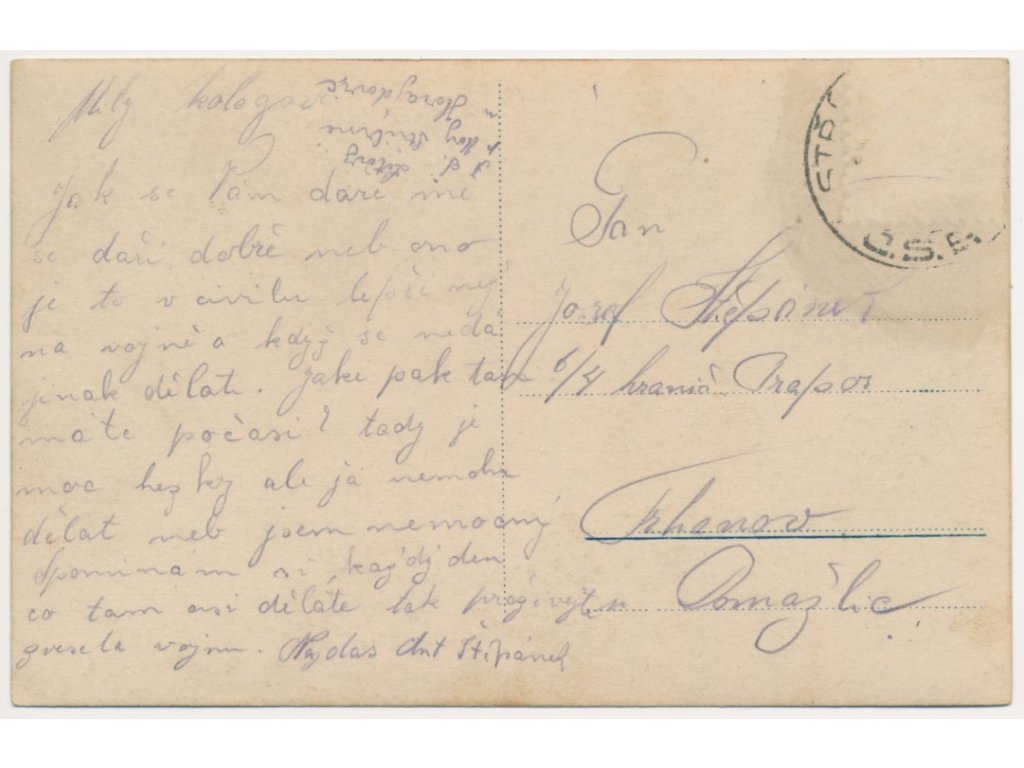 Milý kologové
Jak se Vám daří mě
se daří dobrě neb ono
je to v civilu lepší nej
na vojně a když se nedá
jinak dělati. Jaké pak tam
máte počasí? tady je
moc hezky ale já nemohu
dělat neb jsem nemocný
Spominám si každý den
co tam asi děláte tak
vesela vojnu. Ant Štěpánek
u Horažďovic
Hory Stříbrné
Pan
Josef Štěpánek
6/4 hranič. Prapor
Trhanov
u Domažlic
C.S.P.